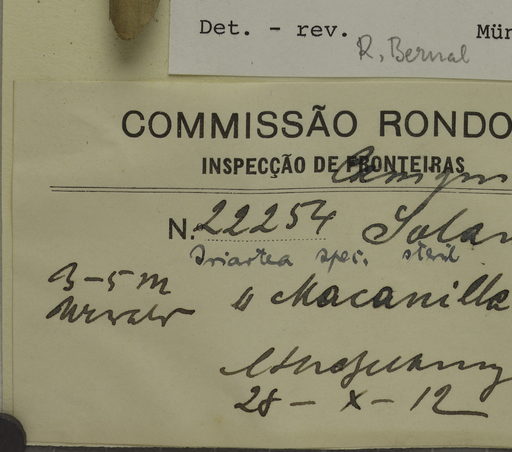 Det. - rev.
R. Bernal
Mün
COMMISSÃO RONDO
INSPECÇÃO DE FRONTEIRAS
N. 22254 Solan
Iriartea spec. steril
3-5 m
Urwald
" Macanilla
28 - X - 12